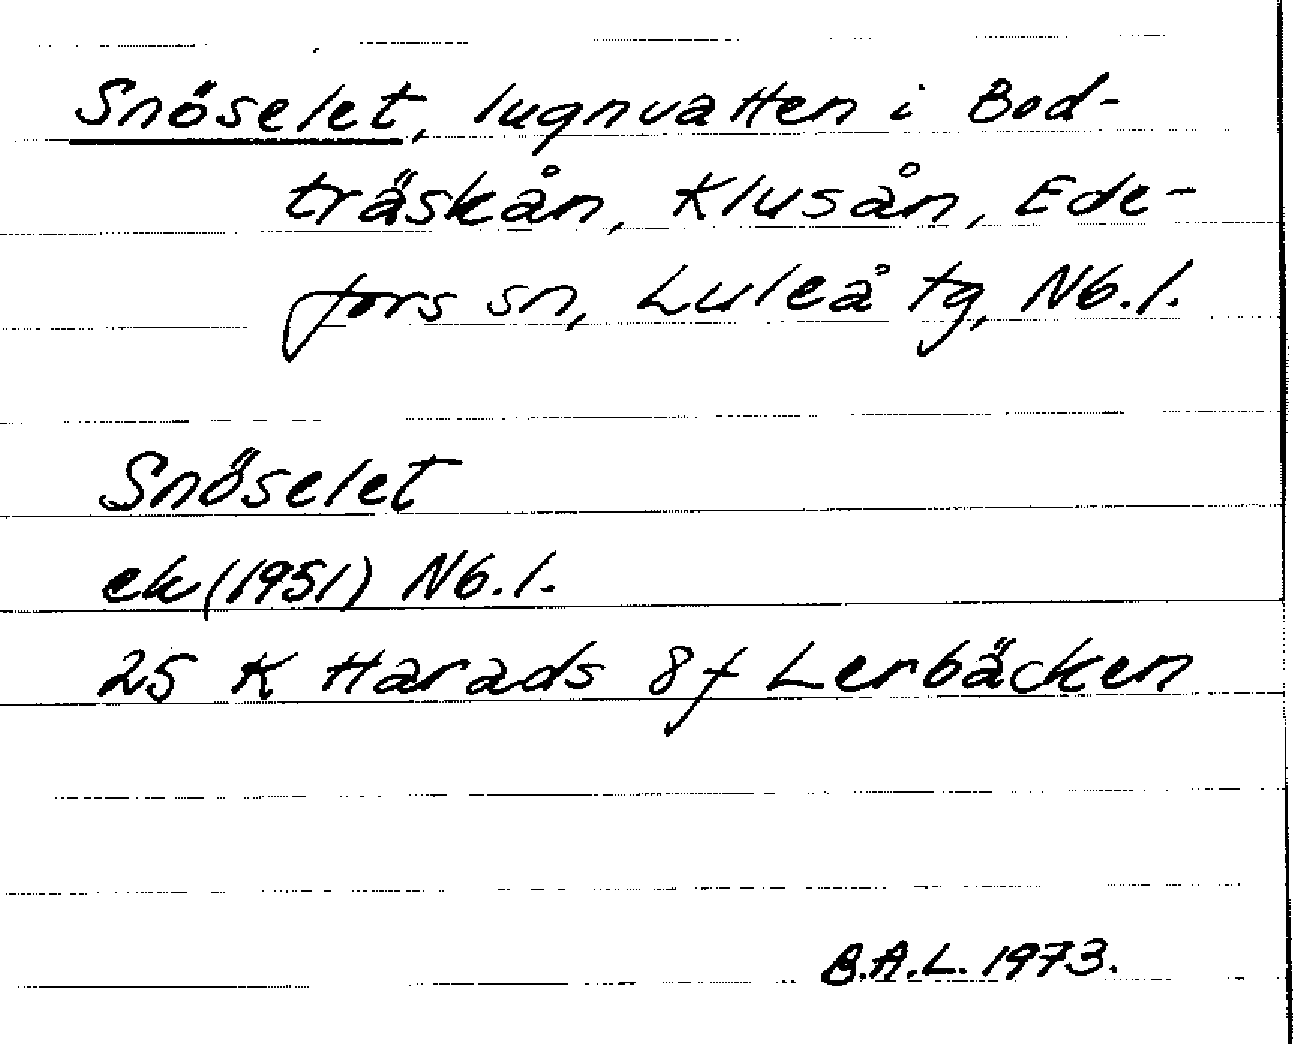 Snöselet, lugnvatten i Bod-
träskån, Klusån, Ede-
fors sn, Luleå tg, Nb.l.
Snöselet
ek (1951) Nb.l.
25 K Harads 8f Lerbäcken
B.A.L. 1973.